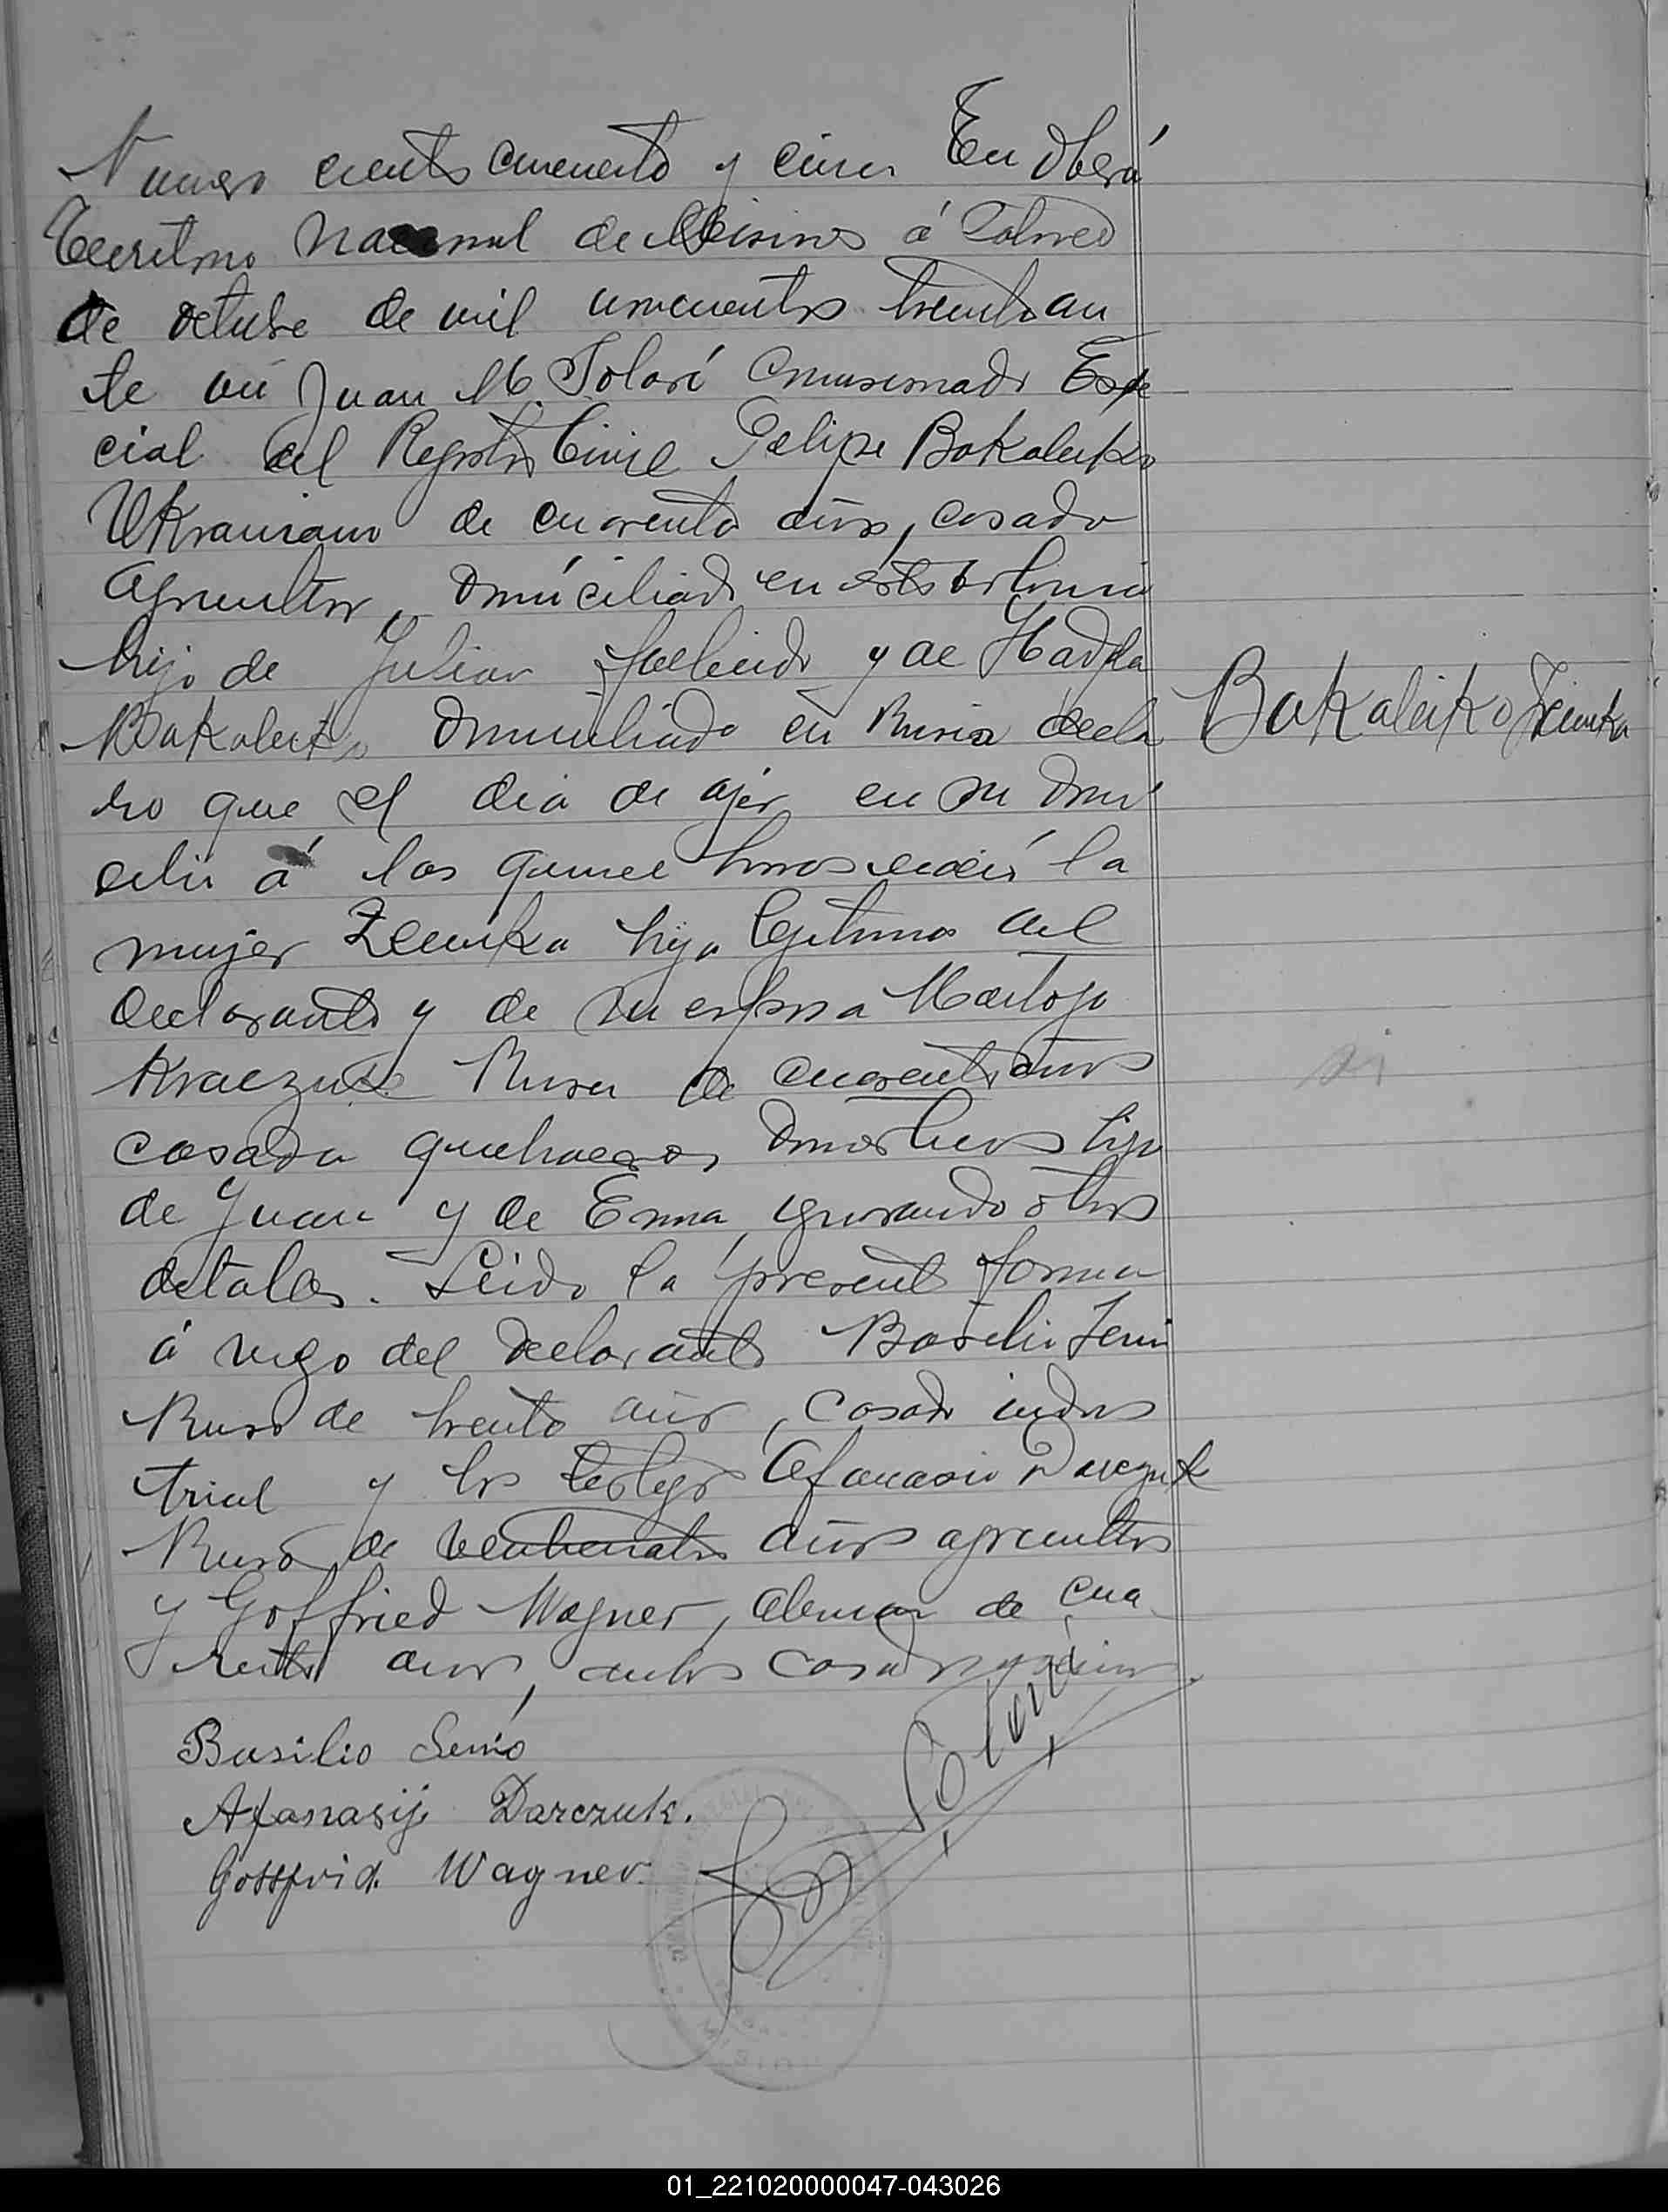 Numero ciento cincuenta y cinco En Oberá
Territorio Nacional de Misiones á Catorce
de octubre de mil novecientos treinta an
te mi Juan M. Solari Comisionado Espe
cial del Registro Civil Felipe Bakaleiko
Ukraniano de cuarenta años, casado
Agricultor, domiciliado en esta Colonia
hijo de Julian fallecido y de Hadka
Bakaleiko domiciliado en Rusia decla
ro que el dia de ayer en su domi
cilio á las quince horas nació la
mujer Zeneka hija legitima del
declarante y de su esposa
Kraczuk Rusa de cuarenta años
casada quehaceres domesticos hija
de Juan y de Enna, ignorando otros
detalles. Leido la presente forma
á ruego del declarante Basilio Semi
Ruso de treinta años, casado indus
trial y los testigos Afanasio Darczuk
Ruso, de años agricultor
y Goffried Wagner, Aleman de cua
renta años, ambos casados
Bakaleiko Zeneka
si
Basilio Semio
Afanasij Darczuk.
Gottfrid. Wagner.
Solari
01_221020000047-043026